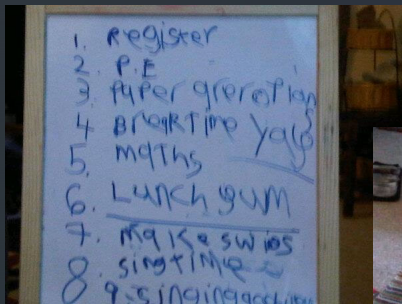 1. Register
2. P.E
3. Paper
4. BreakTime Yay
5. maths
6. Lunch yum
7. make
8. singtime
9. singing